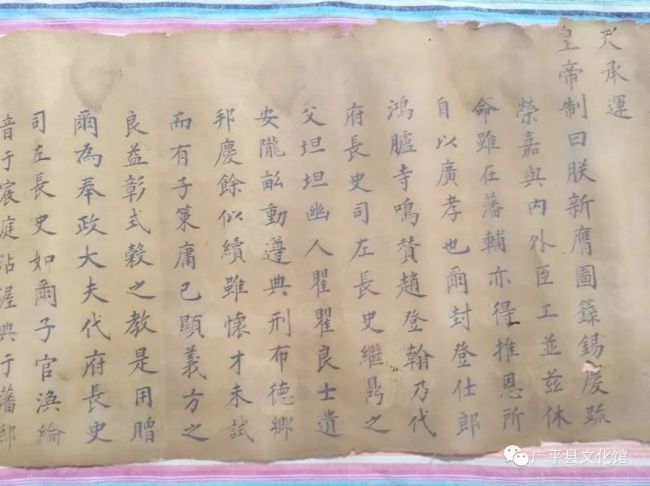 天承運
皇帝制曰朕新膺圖籙錫慶疏
榮嘉與內外臣工並茲休
命雖在藩輔亦得推恩所
自以廣孝也爾封登仕郎
鴻臚寺鳴贊趙登翰乃代
府長史司左長史繼鼎之
父坦坦幽人瞿瞿良士遺
安隴畝動遵典刑布德鄉
邦慶餘似續雖懷才未試
而有子策庸已顯義方之
良益彰式穀之教是用贈
爾為奉政大夫代府長史
司左長史如爾子官渙綸
音于宸庭沾渥典于藩邸
广平县文化馆